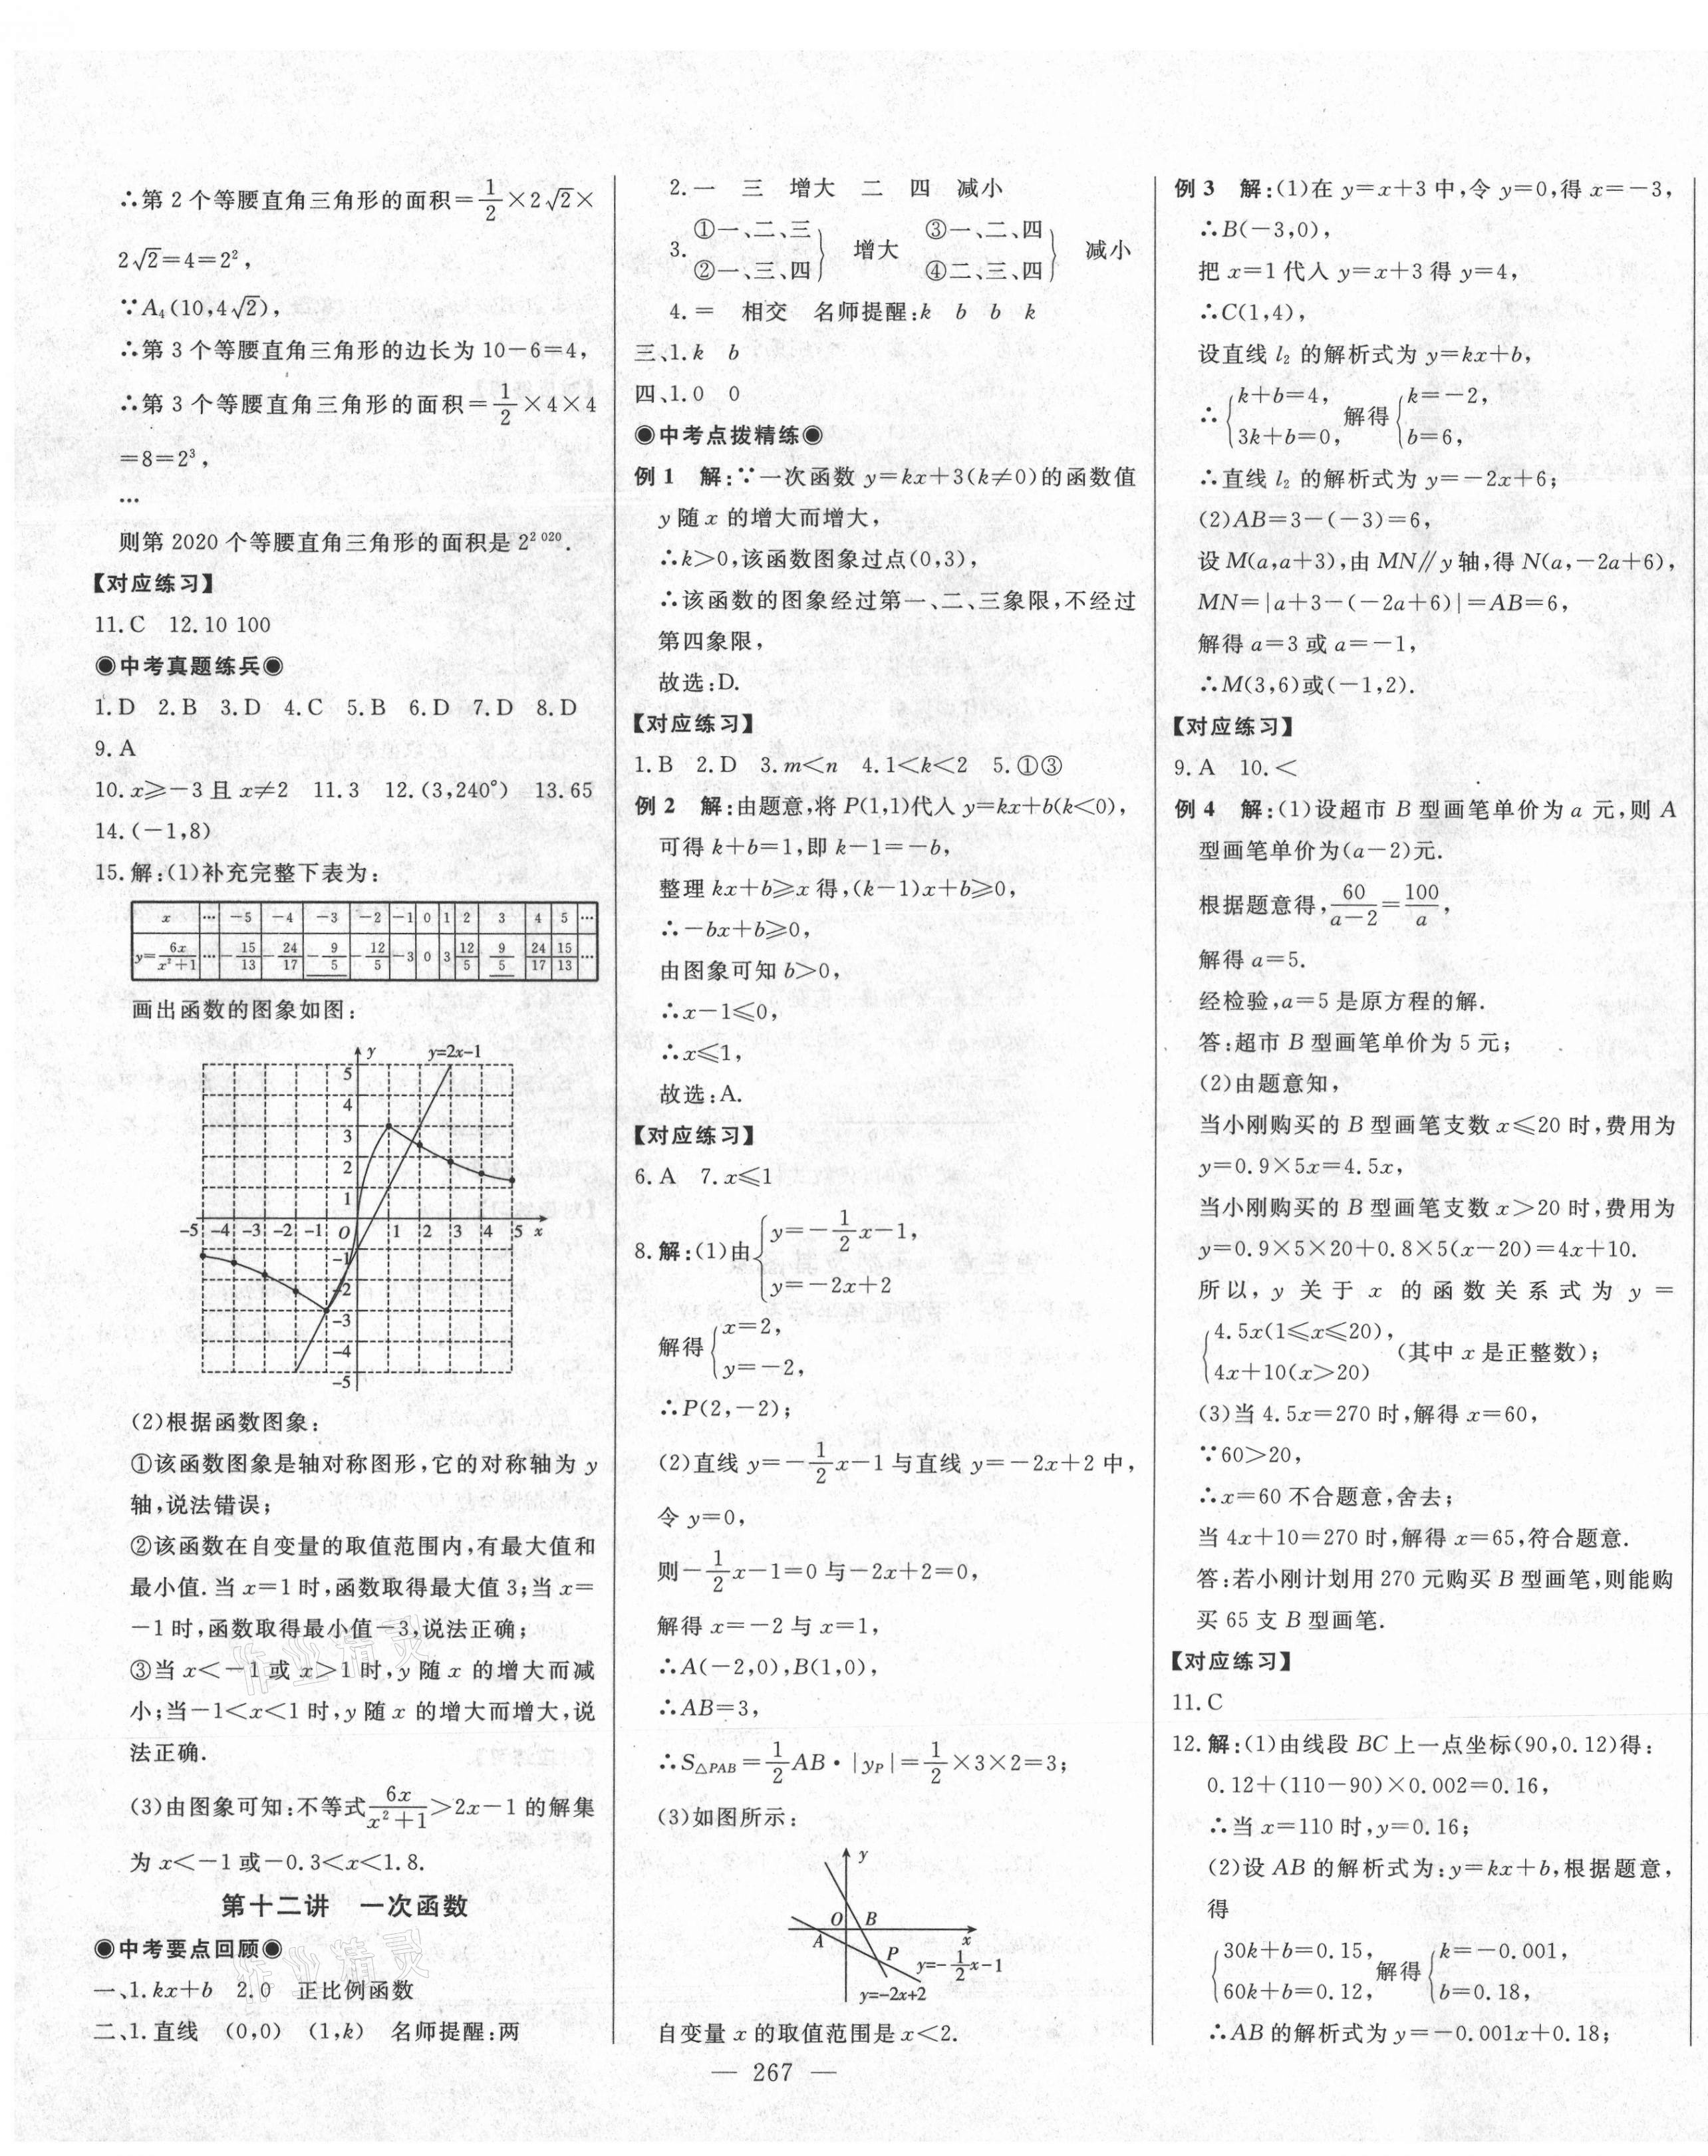 ∴第 2 个等腰直角三角形的面积=1/2×2√2×
2√2=4=2²,
∵A₄(10,4√2),
∴第 3 个等腰直角三角形的边长为 10-6=4,
∴第 3 个等腰直角三角形的面积=1/2×4×4
=8=2³,
…
则第 2020 个等腰直角三角形的面积是 2²⁰²⁰.
【对应练习】
11.C 12.10 100
◉中考真题练兵◉
1.D 2.B 3.D 4.C 5.B 6.D 7.D 8.D
9.A
10.x≥-3 且 x≠2 11.3 12.(3,240°) 13.65
14.(-1,8)
15.解:(1)补充完整下表为:
x … -5 -4 -3 -2 -1 0 1 2 3 4 5 …
y=6x/(x²+1) … -15/13 -24/17 -9/5 -12/5 -3 0 3 12/5 9/5 24/17 15/13 …
画出函数的图象如图:
y y=2x-1
5
4
3
2
1
-5 -4 -3 -2 -1 O 1 2 3 4 5 x
-1
-2
-3
-4
-5
(2)根据函数图象:
①该函数图象是轴对称图形,它的对称轴为 y
轴,说法错误;
②该函数在自变量的取值范围内,有最大值和
最小值.当 x=1 时,函数取得最大值 3;当 x=
-1 时,函数取得最小值-3,说法正确;
③当 x<-1 或 x>1 时,y 随 x 的增大而减
小;当-1<x<1 时,y 随 x 的增大而增大,说
法正确.
(3)由图象可知:不等式6x/(x²+1)>2x-1 的解集
为 x<-1 或-0.3<x<1.8.
第十二讲 一次函数
◉中考要点回顾◉
一、1.kx+b 2.0 正比例函数
二、1.直线 (0,0) (1,k) 名师提醒:两
2.一 三 增大 二 四 减小
3. ①一、二、三 ②一、三、四} 增大 ③一、二、四 ④二、三、四} 减小
4.= 相交 名师提醒:k b b k
三、1.k b
四、1.0 0
◉中考点拨精练◉
例 1 解:∵一次函数 y=kx+3(k≠0)的函数值
y 随 x 的增大而增大,
∴k>0,该函数图象过点(0,3),
∴该函数的图象经过第一、二、三象限,不经过
第四象限,
故选:D.
【对应练习】
1.B 2.D 3.m<n 4.1<k<2 5.①③
例 2 解:由题意,将 P(1,1)代入 y=kx+b(k<0),
可得 k+b=1,即 k-1=-b,
整理 kx+b≥x 得,(k-1)x+b≥0,
∴-bx+b≥0,
由图象可知 b>0,
∴x-1≤0,
∴x≤1,
故选:A.
【对应练习】
6.A 7.x≤1
8.解:(1)由{y=-1/2x-1, y=-2x+2
解得{x=2, y=-2,
∴P(2,-2);
(2)直线 y=-1/2x-1 与直线 y=-2x+2 中,
令 y=0,
则-1/2x-1=0 与-2x+2=0,
解得 x=-2 与 x=1,
∴A(-2,0),B(1,0),
∴AB=3,
∴S△PAB=1/2AB·|yP|=1/2×3×2=3;
(3)如图所示:
y
O B
A x
P
y=-1/2x-1
y=-2x+2
自变量 x 的取值范围是 x<2.
例 3 解:(1)在 y=x+3 中,令 y=0,得 x=-3,
∴B(-3,0),
把 x=1 代入 y=x+3 得 y=4,
∴C(1,4),
设直线 l₂ 的解析式为 y=kx+b,
∴{k+b=4, 3k+b=0, 解得{k=-2, b=6,
∴直线 l₂ 的解析式为 y=-2x+6;
(2)AB=3-(-3)=6,
设 M(a,a+3),由 MN∥y 轴,得 N(a,-2a+6),
MN=|a+3-(-2a+6)|=AB=6,
解得 a=3 或 a=-1,
∴M(3,6)或(-1,2).
【对应练习】
9.A 10.<
例 4 解:(1)设超市 B 型画笔单价为 a 元,则 A
型画笔单价为(a-2)元.
根据题意得,60/(a-2)=100/a,
解得 a=5.
经检验,a=5 是原方程的解.
答:超市 B 型画笔单价为 5 元;
(2)由题意知,
当小刚购买的 B 型画笔支数 x≤20 时,费用为
y=0.9×5x=4.5x,
当小刚购买的 B 型画笔支数 x>20 时,费用为
y=0.9×5×20+0.8×5(x-20)=4x+10.
所以,y 关于 x 的函数关系式为 y=
{4.5x(1≤x≤20), 4x+10(x>20) (其中 x 是正整数);
(3)当 4.5x=270 时,解得 x=60,
∵60>20,
∴x=60 不合题意,舍去;
当 4x+10=270 时,解得 x=65,符合题意.
答:若小刚计划用 270 元购买 B 型画笔,则能购
买 65 支 B 型画笔.
【对应练习】
11.C
12.解:(1)由线段 BC 上一点坐标(90,0.12)得:
0.12+(110-90)×0.002=0.16,
∴当 x=110 时,y=0.16;
(2)设 AB 的解析式为:y=kx+b,根据题意,
得
{30k+b=0.15, 60k+b=0.12, 解得{k=-0.001, b=0.18,
∴AB 的解析式为 y=-0.001x+0.18;
— 267 —
作业精灵
作业精灵